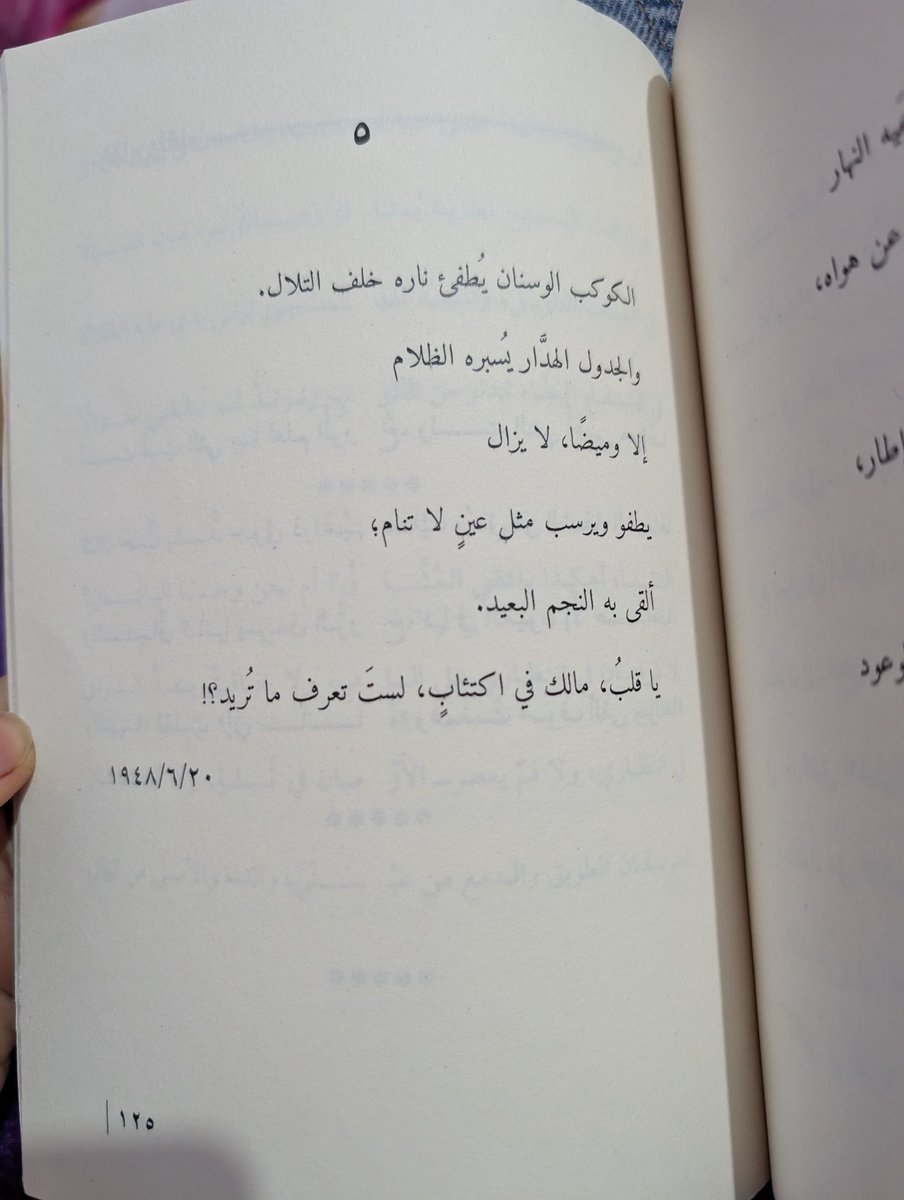 ٥
الكوكب الوسنان يُطفئ ناره خلف التلال.
والجدول الهدَّار يُسبره الظلام
إلا وميضًا، لا يزال
يطفو ويرسب مثل عينٍ لا تنام؛
ألقى به النجم البعيد.
يا قلبُ، مالك في اكتئابٍ، لستَ تعرف ما تُريد؟!
١٩٤٨/٦/٢٠
١٢٥
النهار
عن هواه،